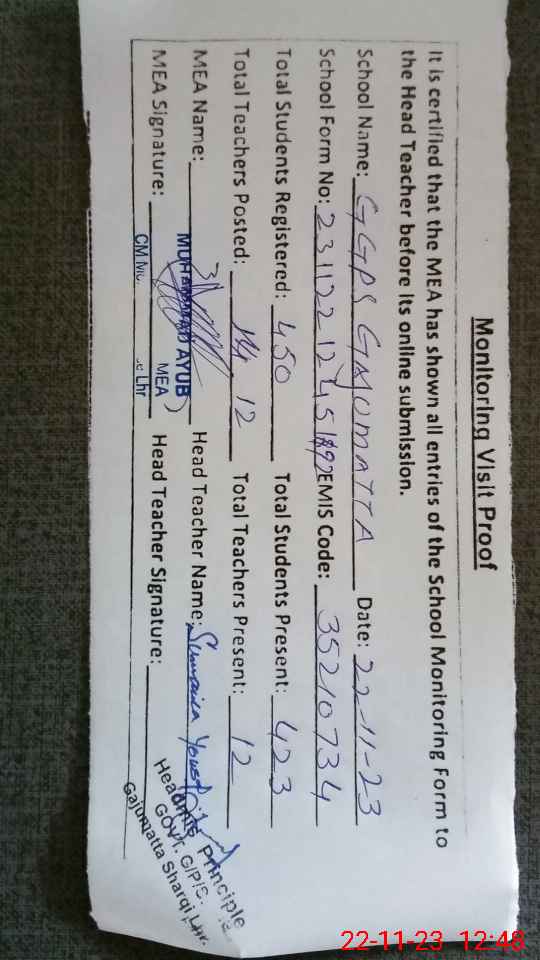 Monitoring Visit Proof
It is certified that the MEA has shown all entries of the School Monitoring Form to
the Head Teacher before its online submission.
School Name: GGPS GAJUMATTA Date: 22-11-23
School Form No: 23112212451 EMIS Code: 35210734
Total Students Registered: 450 Total Students Present: 423
Total Teachers Posted: 14 12 Total Teachers Present: 12
MEA Name: Head Teacher Name: Sumaira
MEA Signature: Head Teacher Signature:
MUHAMMAD AYUB
MEA
Lhr
Principle
GOVT. G/P/S.
Gajumatta Sharqi, Lhr.
22-11-23 12:48